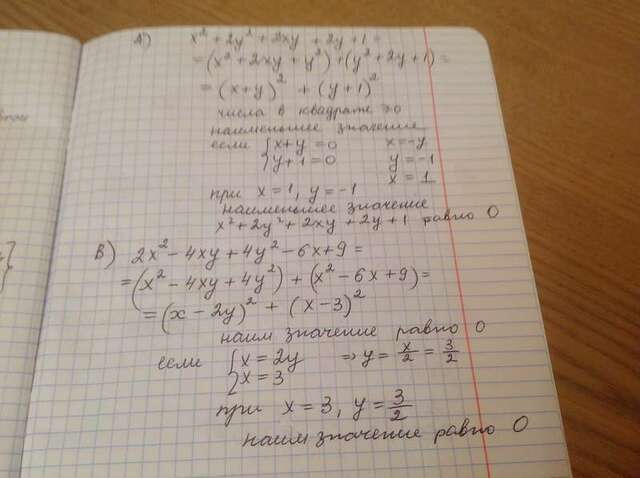 А) x² + 2y² + 2xy + 2y + 1 =
= (x² + 2xy + y²) + (y² + 2y + 1) =
= (x + y)² + (y + 1)²
числа в квадрате ≥0
наименьшее значение
если { x + y = 0 x = -y
{ y + 1 = 0 y = -1
x = 1
при x = 1, y = -1
наименьшее значение
x² + 2y² + 2xy + 2y + 1 равно 0
В) 2x² - 4xy + 4y² - 6x + 9 =
= (x² - 4xy + 4y²) + (x² - 6x + 9) =
= (x - 2y)² + (x - 3)²
наим значение равно 0
если { x = 2y ⇒ y = x/2 = 3/2
{ x = 3
при x = 3, y = 3/2
наим значение равно 0